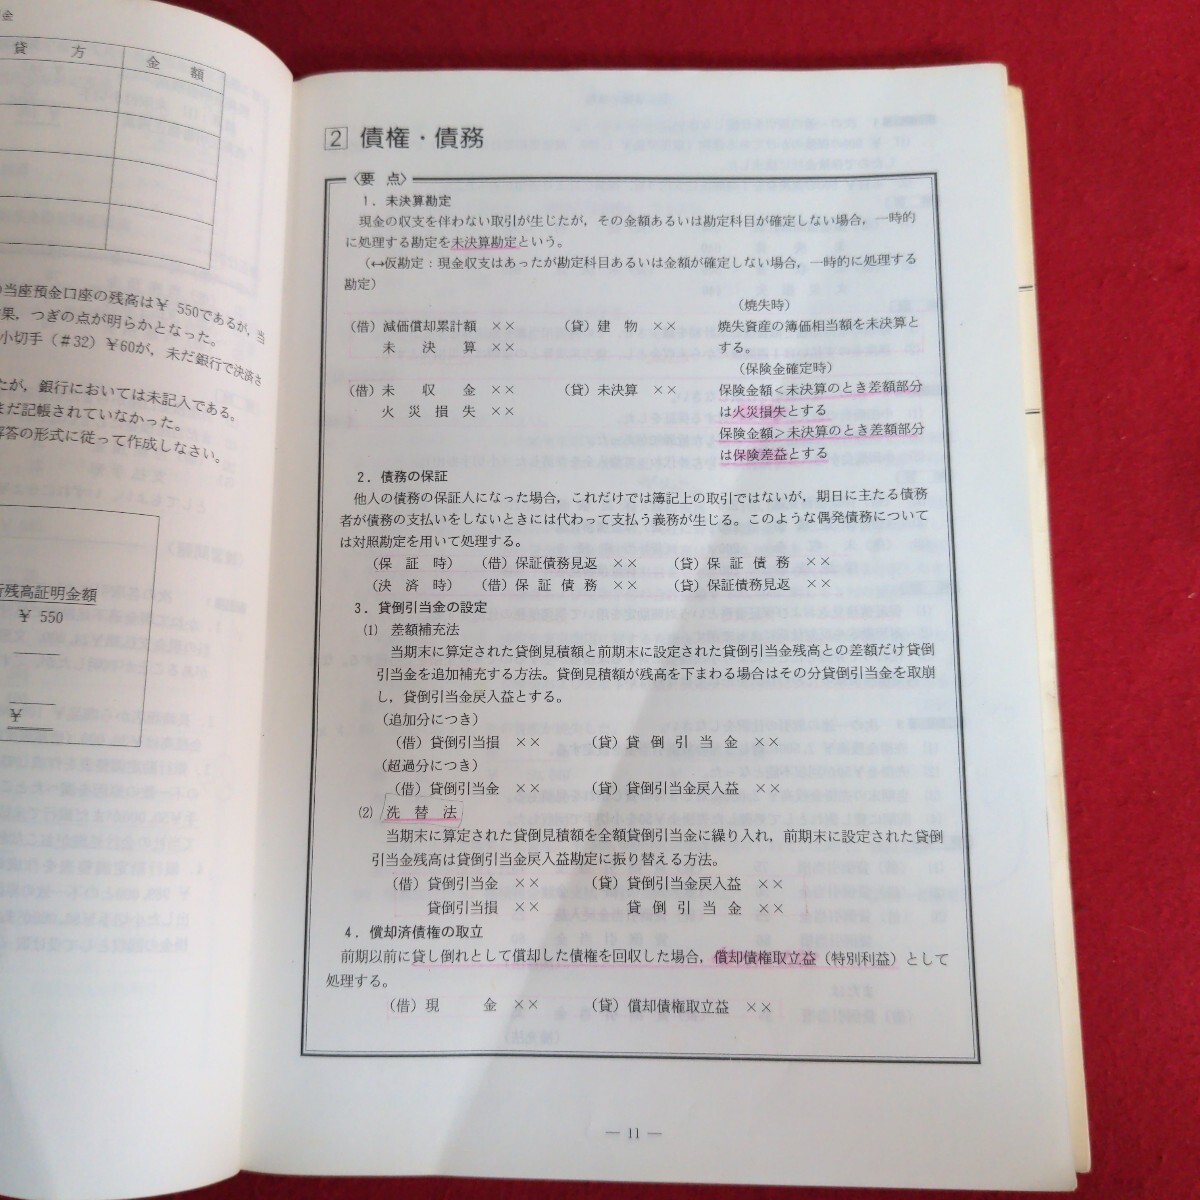 金
貸 方
金 額
当座預金口座の残高は￥ 550であるが，当
果，つぎの点が明らかとなった。
小切手（＃32）￥60が，未だ銀行で決済さ
たが，銀行においては未記入である。
まだ記帳されていなかった。
解答の形式に従って作成しなさい。
行残高証明金額
￥ 550
￥
2 債権・債務
〈要 点〉
1．未決算勘定
現金の収支を伴わない取引が生じたが，その金額あるいは勘定科目が確定しない場合，一時的
に処理する勘定を未決算勘定という。
（↔仮勘定：現金収支はあったが勘定科目あるいは金額が確定しない場合，一時的に処理する
勘定）
（焼失時）
（借）減価償却累計額 ×× （貸）建 物 ×× 焼失資産の簿価相当額を未決算と
未 決 算 ×× する。
（保険金確定時）
（借）未 収 金 ×× （貸）未決算 ×× 保険金額＜未決算のとき差額部分
火 災 損 失 ×× は火災損失とする
保険金額＞未決算のとき差額部分
は保険差益とする
2．債務の保証
他人の債務の保証人になった場合，これだけでは簿記上の取引ではないが，期日に主たる債務
者が債務の支払いをしないときには代わって支払う義務が生じる。このような偶発債務について
は対照勘定を用いて処理する。
（保 証 時） （借）保証債務見返 ×× （貸）保 証 債 務 ××
（決 済 時） （借）保 証 債 務 ×× （貸）保証債務見返 ××
3．貸倒引当金の設定
(1) 差額補充法
当期末に算定された貸倒見積額と前期末に設定された貸倒引当金残高との差額だけ貸倒
引当金を追加補充する方法。貸倒見積額が残高を下まわる場合はその分貸倒引当金を取崩
し，貸倒引当金戻入益とする。
（追加分につき）
（借）貸倒引当損 ×× （貸）貸 倒 引 当 金 ××
（超過分につき）
（借）貸倒引当金 ×× （貸）貸倒引当金戻入益 ××
(2) 洗 替 法
当期末に算定された貸倒見積額を全額貸倒引当金に繰り入れ，前期末に設定された貸倒
引当金残高は貸倒引当金戻入益勘定に振り替える方法。
（借）貸倒引当金 ×× （貸）貸倒引当金戻入益 ××
貸倒引当損 ×× 貸 倒 引 当 金 ××
4．償却済債権の取立
前期以前に貸し倒れとして償却した債権を回収した場合，償却債権取立益（特別利益）として
処理する。
（借）現 金 ×× （貸）償却債権取立益 ××
— 11 —